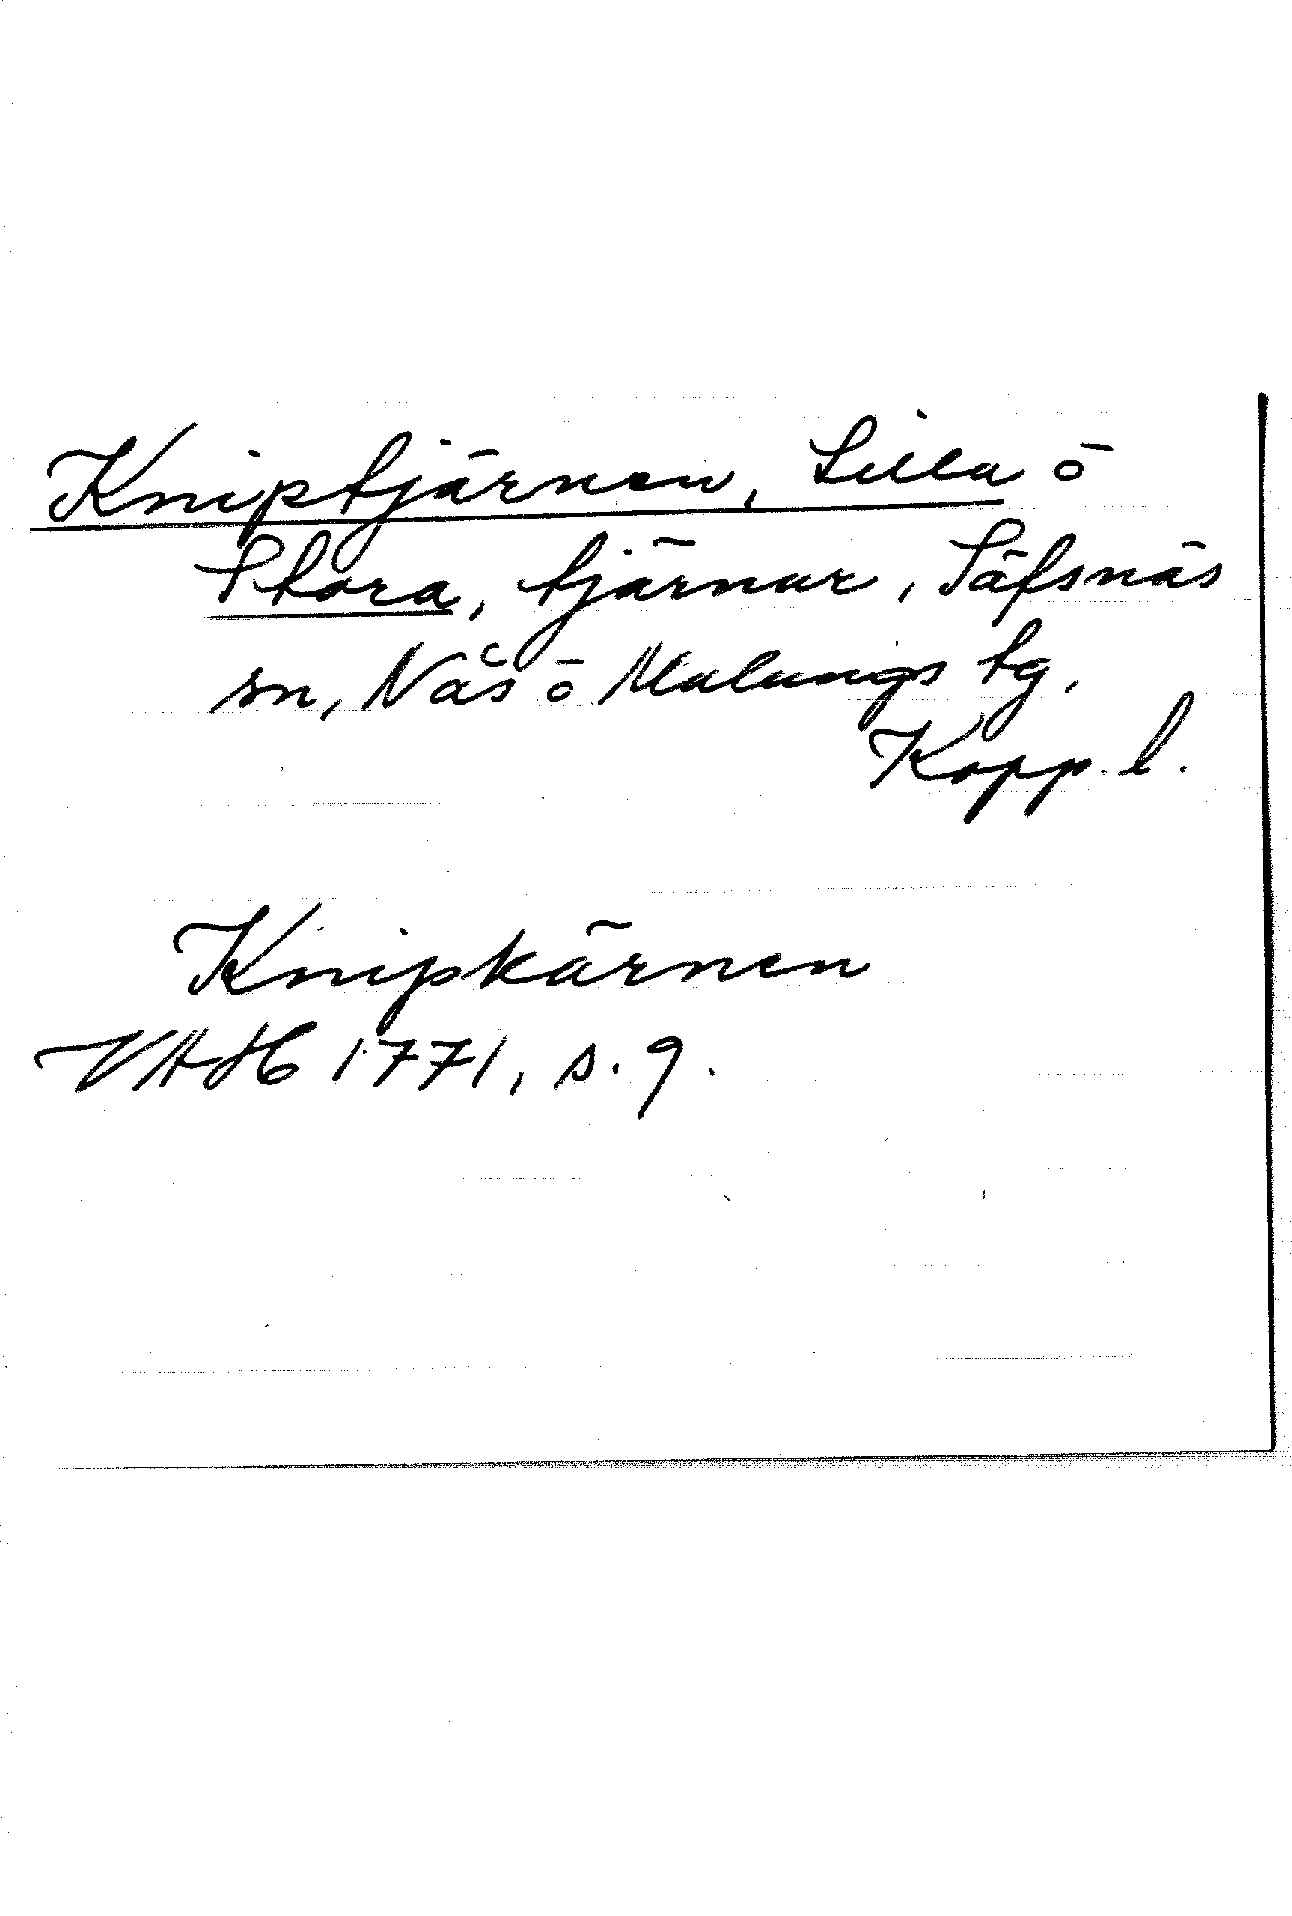 Kniptjärnen, Lilla o
Stora, tjärnar, Säfsnäs
sn, Nås o Malungs tg,
Kopp. l.
Knipkärnen
VAH 1771, s. 9.